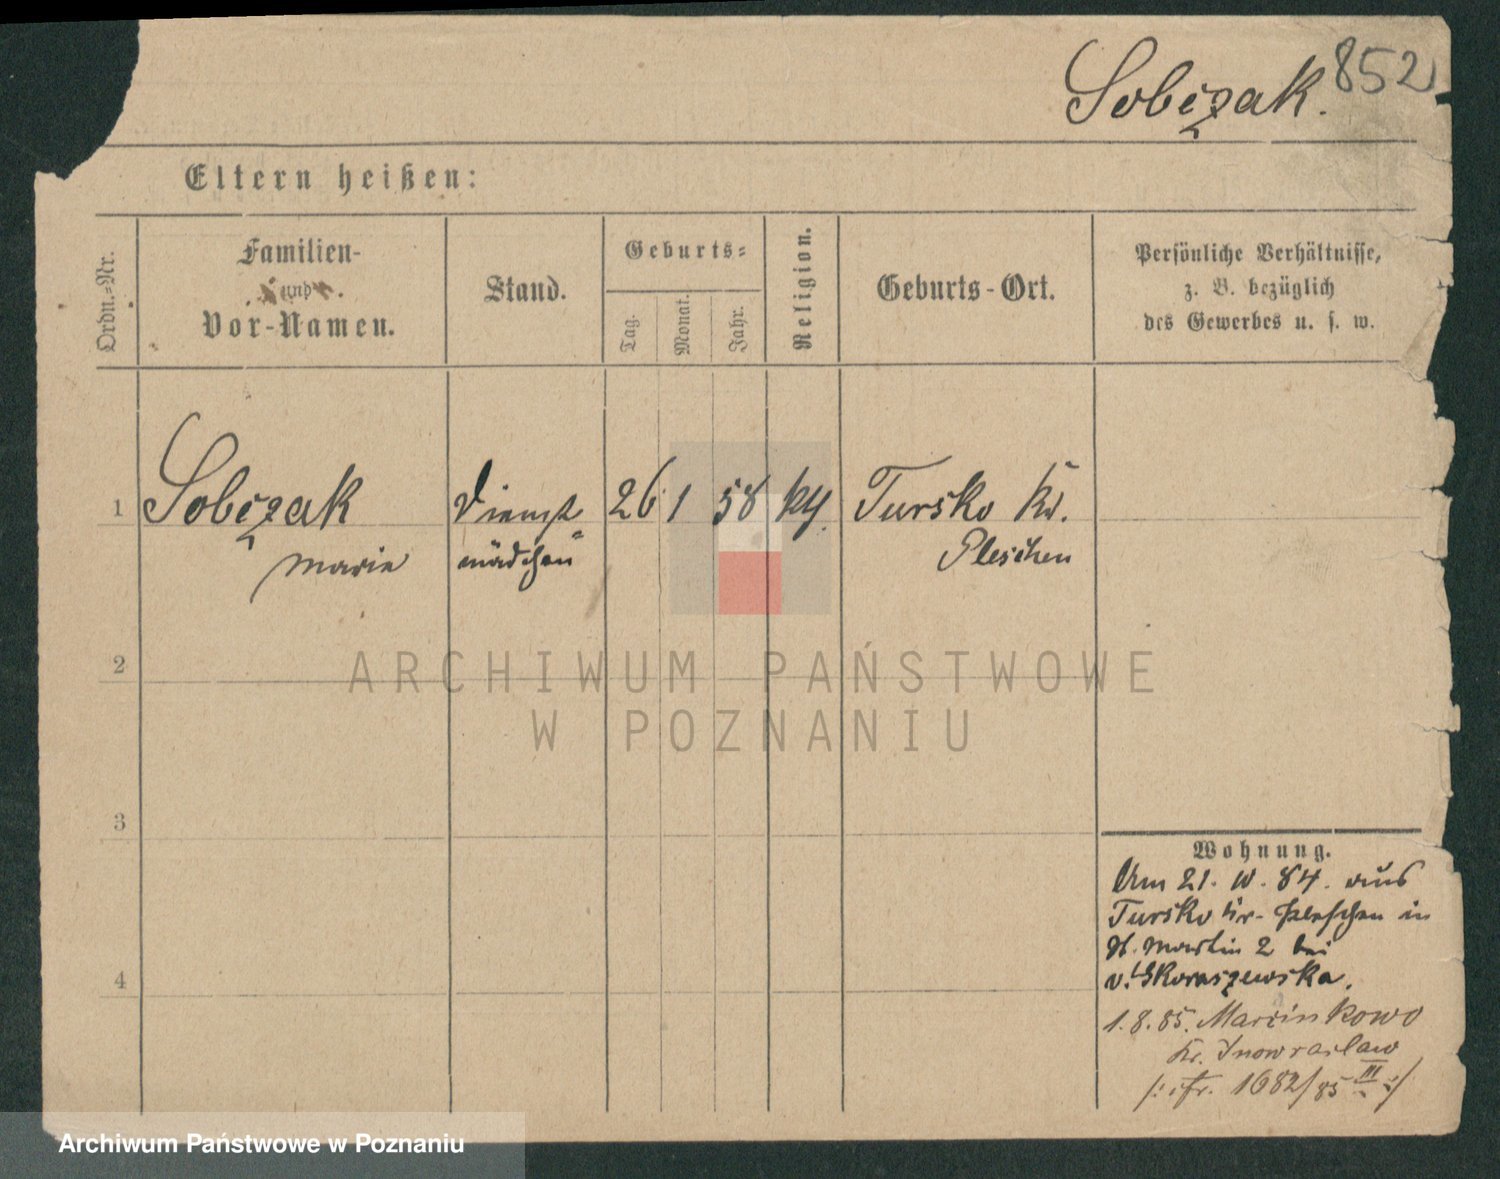 Sobczak. 852
Eltern heißen:
Ordn.-Nr.
Familien-
und
Vor-Namen.
Stand.
Geburts-
Tag.
Monat.
Jahr.
Religion.
Geburts-Ort.
Persönliche Verhältnisse,
z. B. bezüglich
des Gewerbes u. s. w.
1 Sobczak Dienst= 26 1 58 kth. Tursko Kr.
Marie mädchen Pleschen
2
3
4
Wohnung.
Am 21. 10. 84. aus
Tursko Kr. Pleschen in
St. Martin 2 bei
v. Skoraszewska.
1.8.85. Marcinkowo
Kr. Inowraclaw
1682/85 III
ARCHIWUM PAŃSTWOWE
W POZNANIU
Archiwum Państwowe w Poznaniu